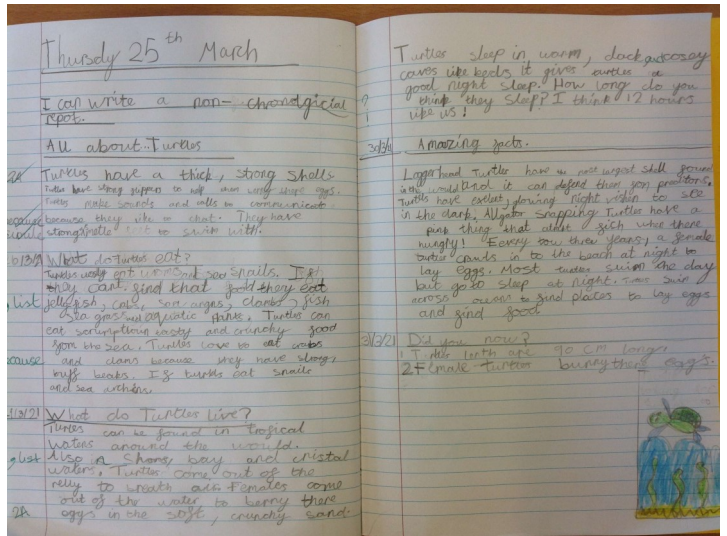 Thursdy 25th March
I can write a non- chronolgicial
repot.
All about Turtles
2A
Turtles have a thick, strong shells
Turtles have strong flippers to help them
eggs.
Turtles make sounds and calls to communicate
because they like to chat. They have
to swim with.
What do Turtles eat?
Turtles eat worms and sea snails. If
they cant find that food they eat
list
jelly fish, crabs, clams, fish
Sea grass and aquatic plants. Turtles can
eat scrumptious tasty and crunchy food
form the sea. Turtles love to eat crabs
and clams because they have strong,
buff beaks. If turtles eat snails
and sea
What do Turtles live?
Turtles can be found in trofical
waters around the would.
list
Also in bay and cristal
waters, Turtles come out of the
to breath air. Females come
2A
out of the water to berry there
eggs in the soft, crunchy sand.
Turtles sleep in warm, dack and coosey
caves like beds it gives turtles a
good night sleep. How long do you
?
think they sleep? I think 12 hours
!
like us!
30/3/21
Amaizing facts.
Loggerhead Turtle have the most largest skull found
in the would And it can defend them from preditors,
Turtles have exelent, glowing night vishen to see
in the dark, Alligator snapping Turtles have a
pink thing that fich when there
hungry! Eevery tow three years, a female
turtle crawls in to the beach at night to
lay eggs. Most turtles swim the day
but go to sleep at night. Turtles swim
across to find places to lay eggs
and find food
31/3/21
Did you now?
1 Turtles are 90 CM long,
2 Female turtles burry there eggs.